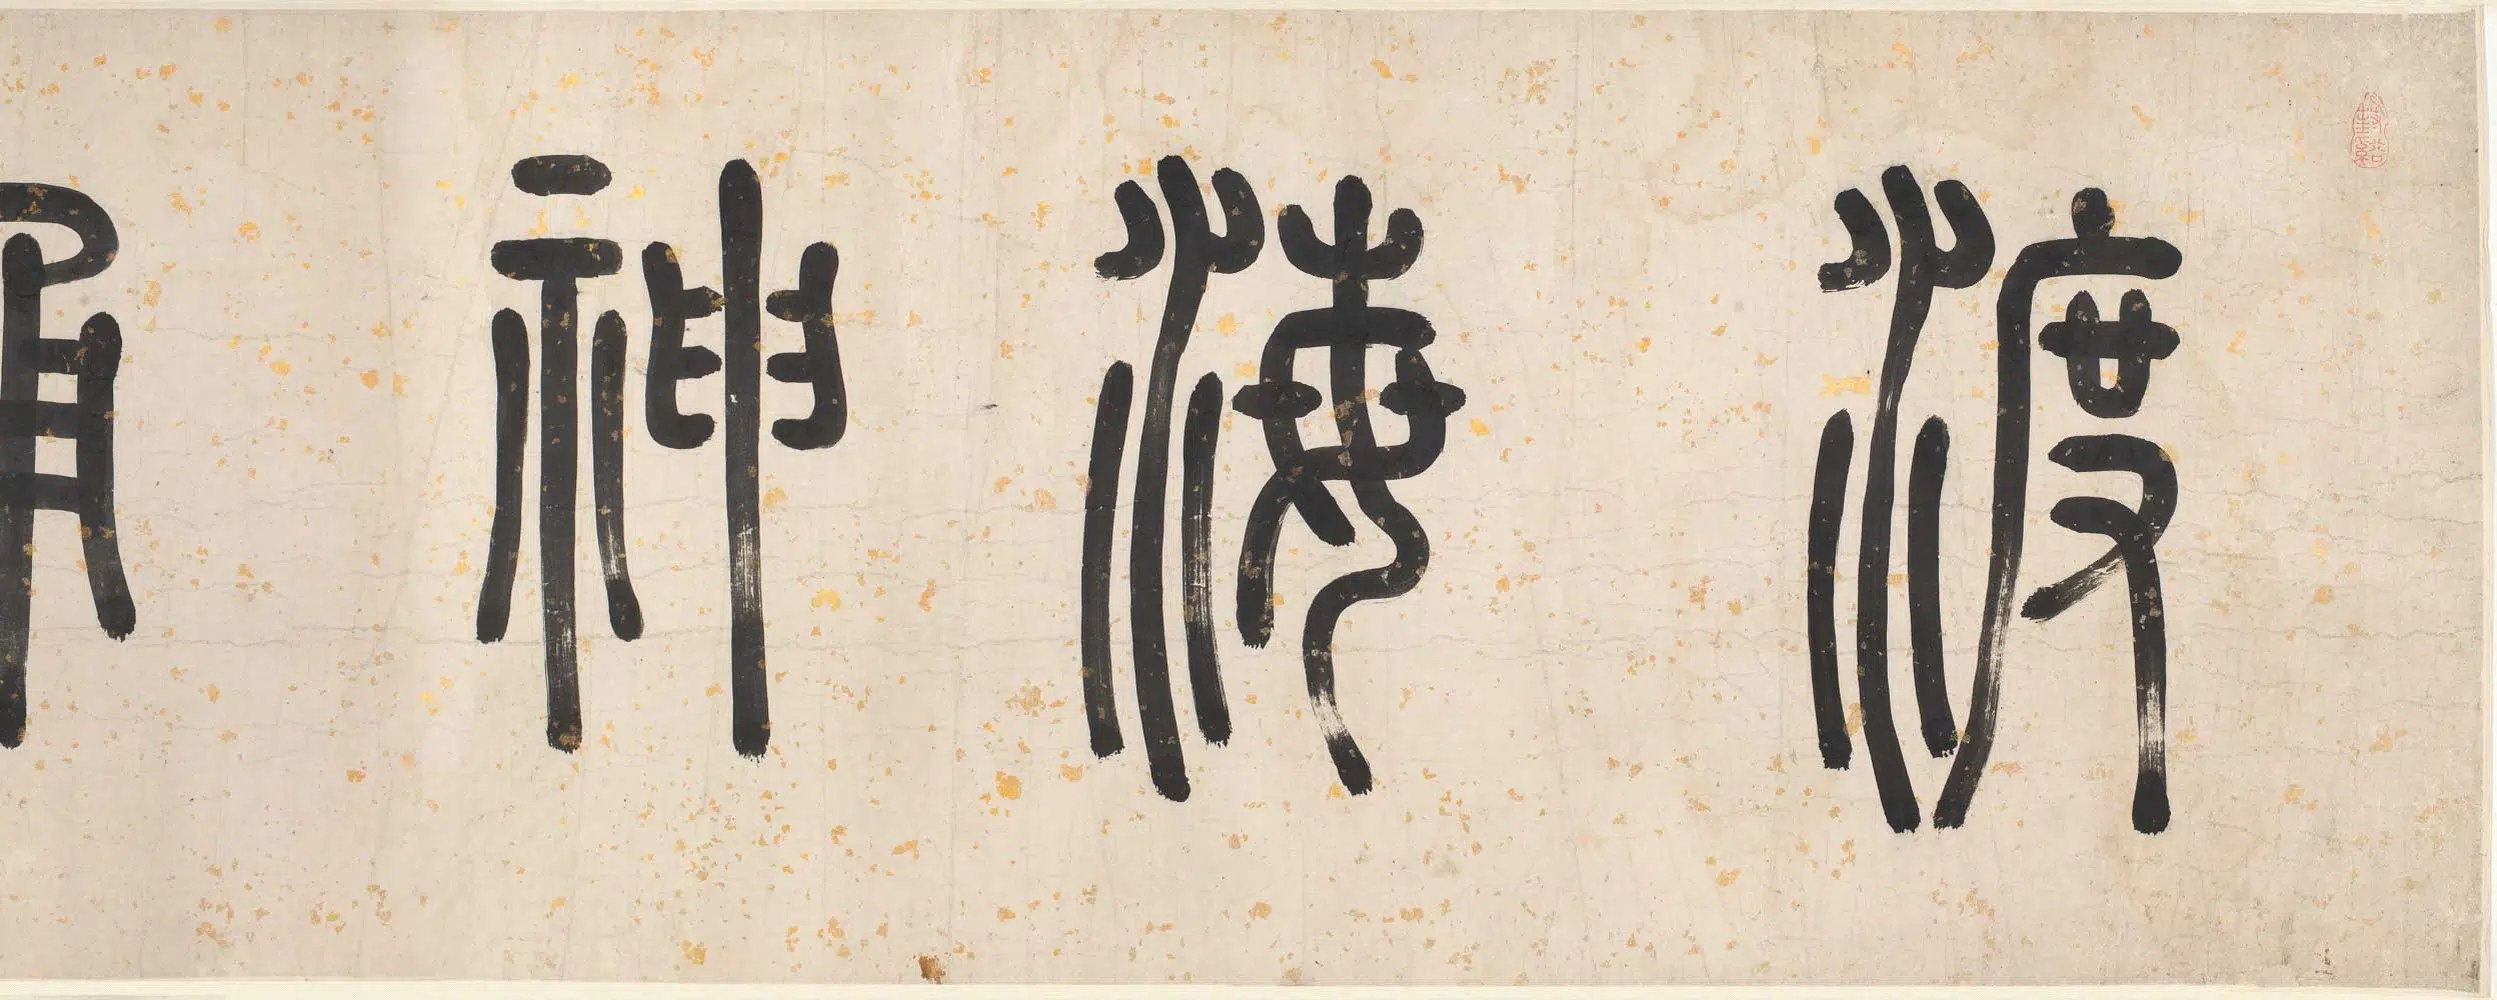 渡海神